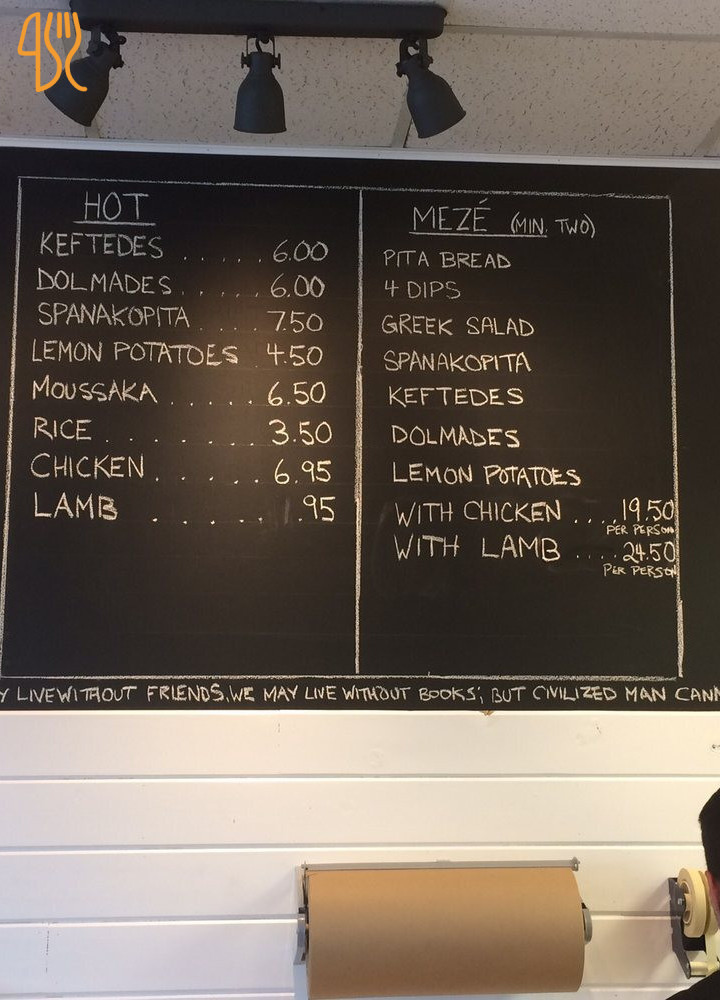 HOT
KEFTEDES ...... 6.00
DOLMADES ..... 6.00
SPANAKOPITA .... 7.50
LEMON POTATOES . 4.50
MOUSSAKA ...... 6.50
RICE ........ 3.50
CHICKEN ...... 6.95
LAMB ...... .95
MEZÉ (MIN. TWO)
PITA BREAD
4 DIPS
GREEK SALAD
SPANAKOPITA
KEFTEDES
DOLMADES
LEMON POTATOES
WITH CHICKEN .... 19.50
PER PERSON
WITH LAMB .... 24.50
PER PERSON
Y LIVE WITHOUT FRIENDS, WE MAY LIVE WITHOUT BOOKS; BUT CIVILIZED MAN CANN